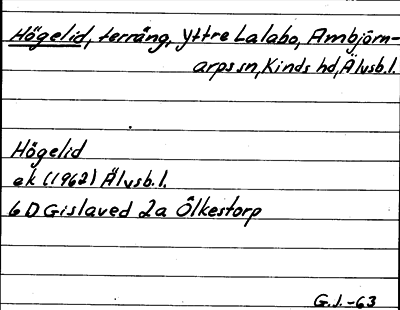 Högelid, terräng, Yttre Lalabo, Ambjörn-
arps sn, Kinds hd, Älvsb.l.
Högelid
ek (1962) Älvsb.l.
6D Gislaved 2a Ölkestorp
G.J.-63